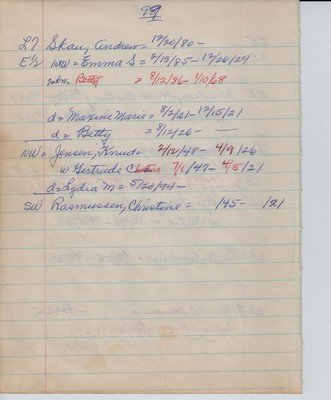 99
L7 Skau, Andrew = 12/20/80 -
E½ 1st W = Emma S = 2/13/85 - 12/26/29
2nd W Betty = 8/12/96 - 1/10/68
d = Maxine Marie = 8/2/21 - 12/15/21
d = Betty = 8/12/26 -
NW = Jensen, Knud = 2/12/48 - 4/9/26
w Gertrude 7/1/47 - 4/5/21
d = Lydia M = 5/20/94 -
SW Rasmussen, Christine = /45 - /21